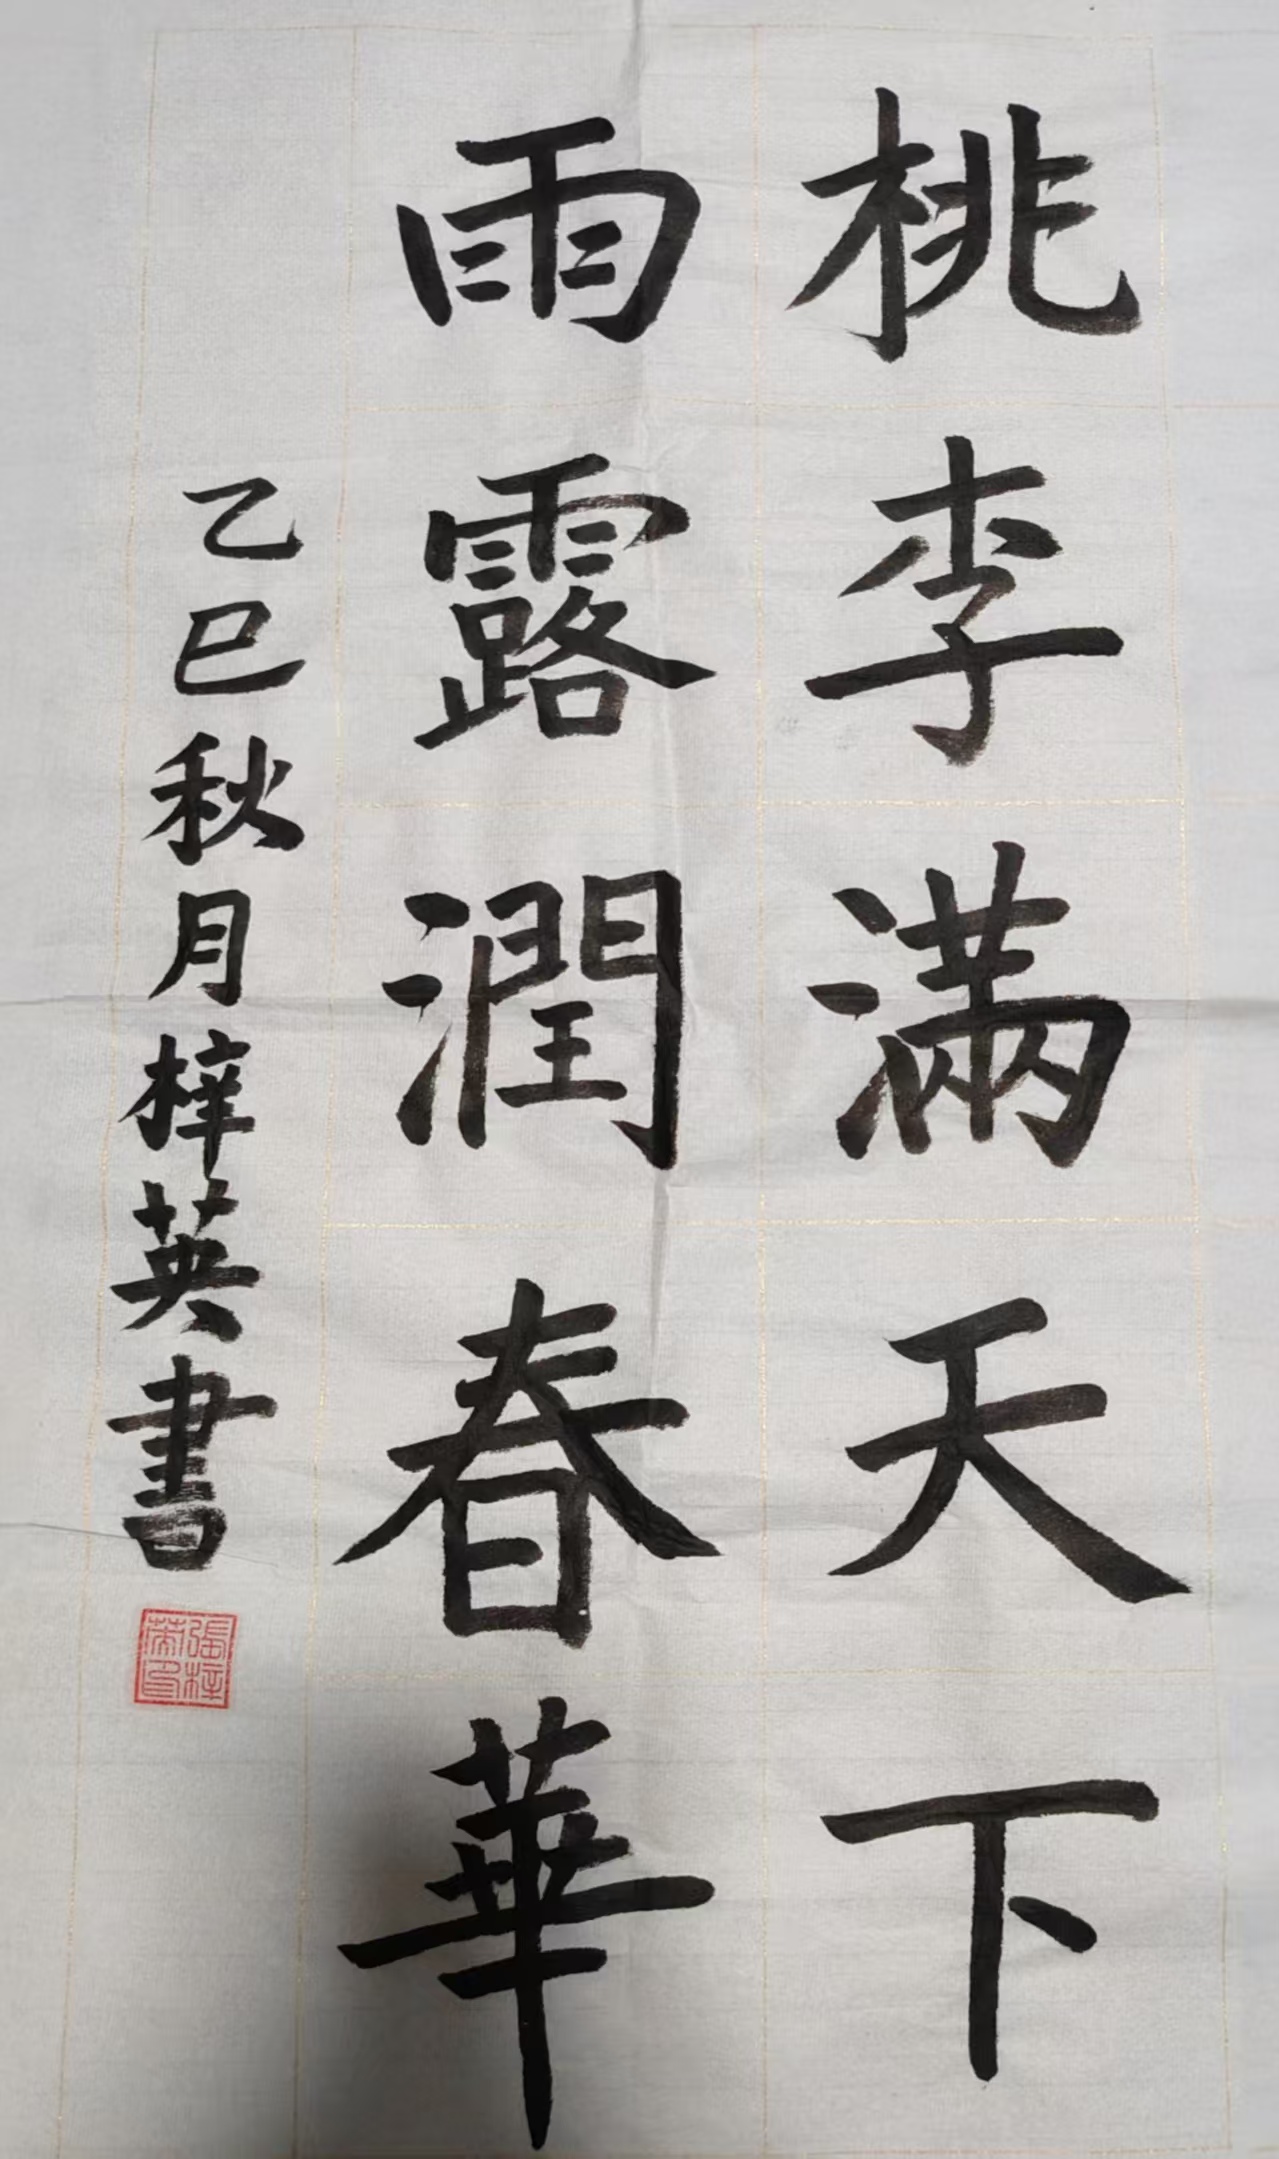 桃李满天下
雨露潤春華
乙巳秋月梓英書
張梓英印